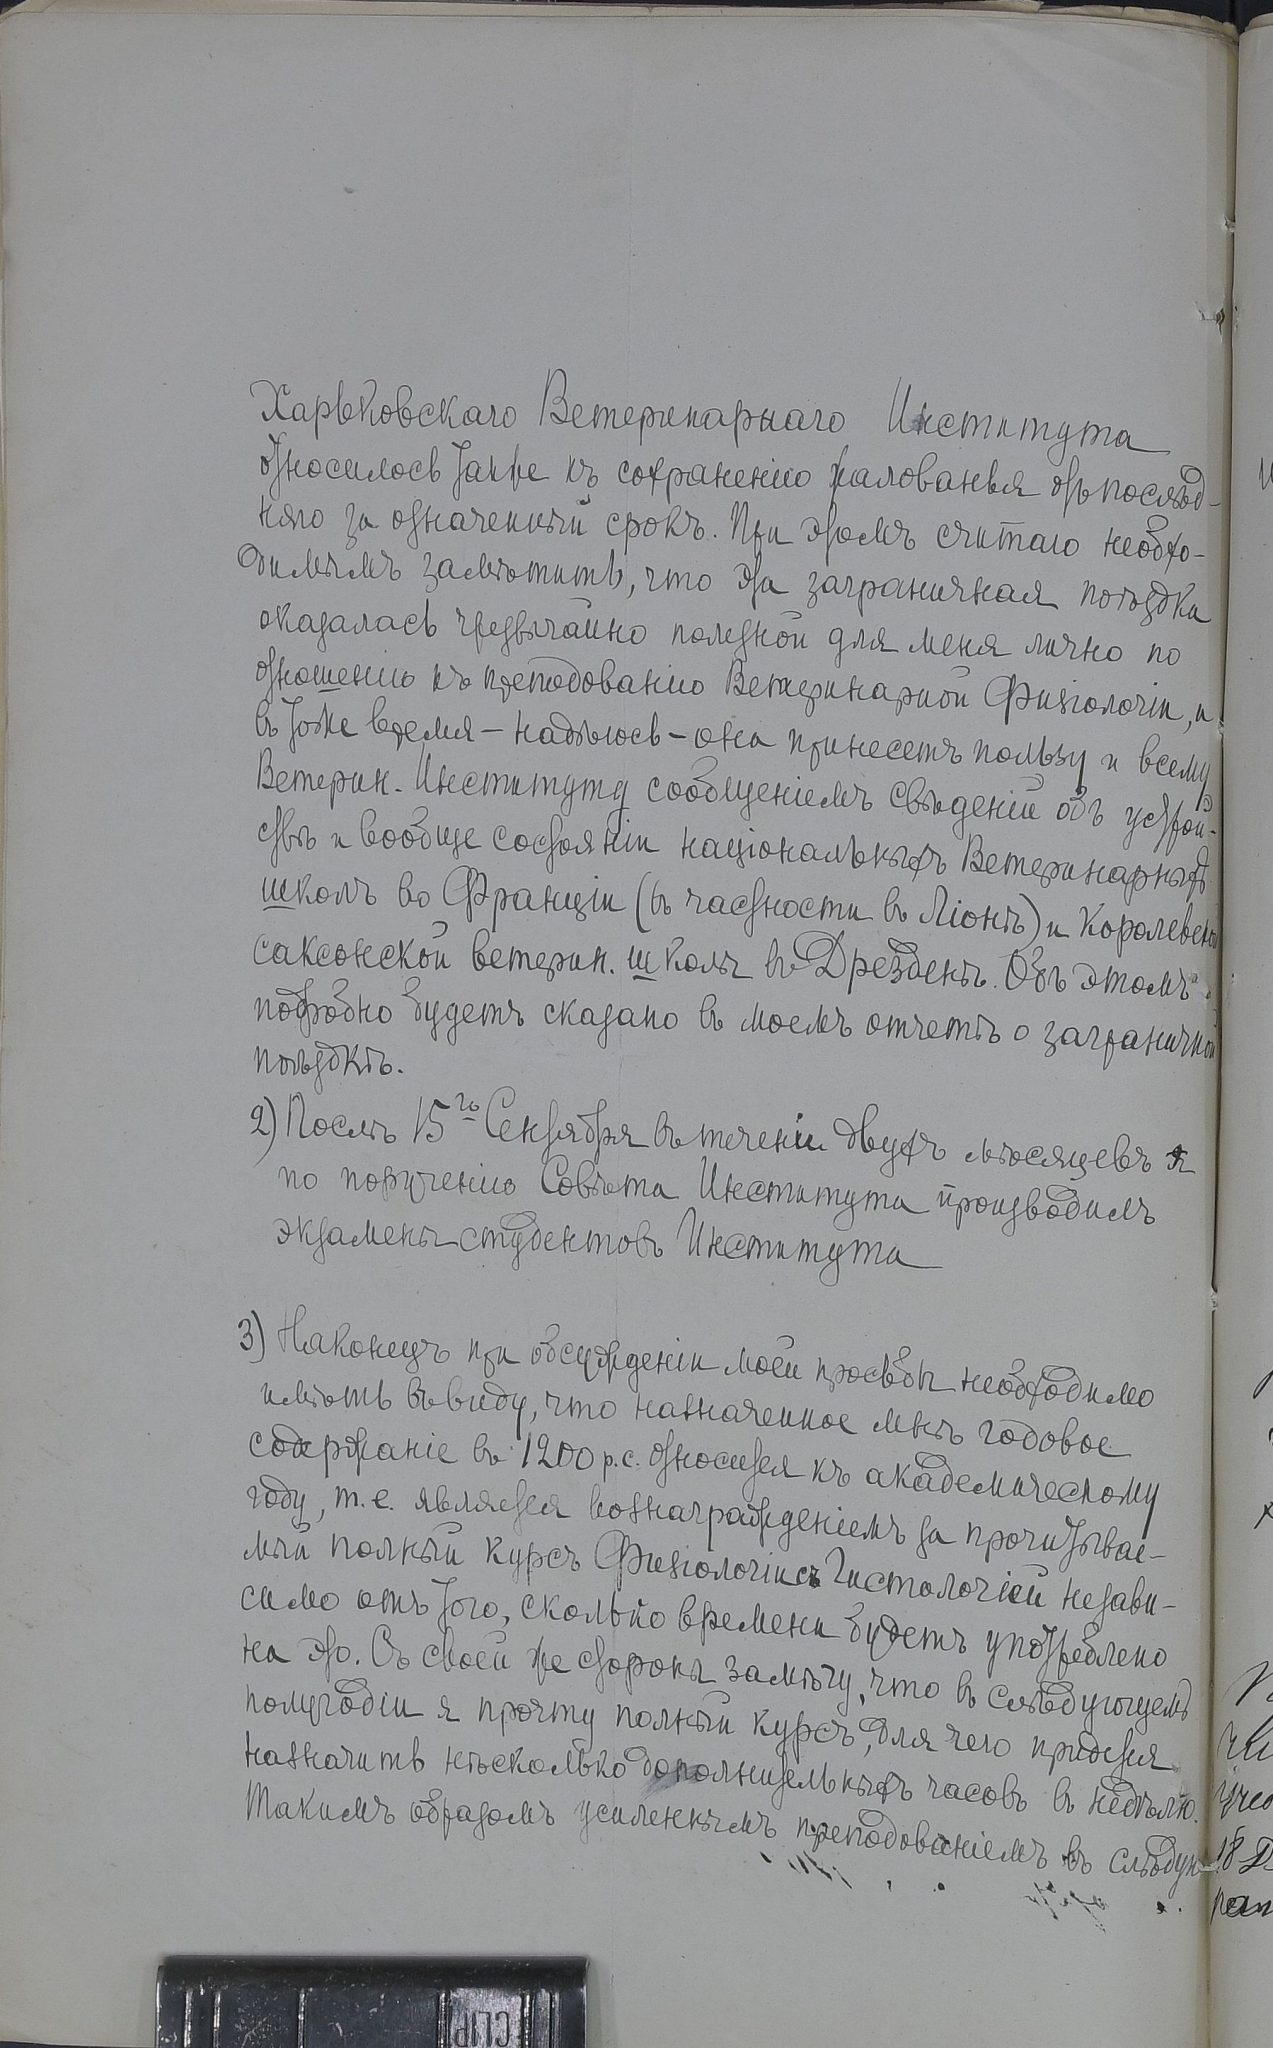 Харьковскаго Ветеринарнаго Института
относилось также къ сохраненію жалованья отъ послѣд-
няго за означенный срокъ. При этомъ считаю необхо-
димымъ замѣтить, что эта заграничная поѣздка
оказалась чрезвычайно полезной для меня лично по
отношенію къ преподованію Ветеринарной Физіологіи, и
въ тоже время – надѣюсь – она принесетъ пользу и всему
Ветерин. Институту сообщеніемъ свѣденій объ устрой-
ствѣ и вообще состояніи національныхъ Ветеринарныхъ
школъ во Франціи (въ частности въ Ліонѣ) и Королевско
саксонской ветерин. школы въ Дрезденѣ. Объ этомъ
подробно будетъ сказано въ моемъ отчетѣ о заграничной
поѣздкѣ.
2) Послѣ 15го Сентября въ теченіи двухъ мѣсяцевъ я
по порученію Совѣта Института производилъ
экзамены студентовъ Института
3) Наконецъ при обсужденіи моей просьбы необходимо
имѣть въ виду, что назначенное мнѣ годовое
содержаніе въ 1200 р. с. относится къ академическому
году, т. е. является вознагражденіемъ за прочитывае-
мый полный курсъ Физіологіи съ Гистологіей незави-
симо отъ того, сколько времени будетъ употреблено
на это. Съ своей же стороны замѣчу, что въ слѣдующемъ
полугодіи я прочту полный курсъ, для чего придется
назначить нѣсколько дополнительныхъ часовъ въ недѣлю.
Такимъ образомъ усиленнымъ преподованіемъ въ слѣдую-
CLIP